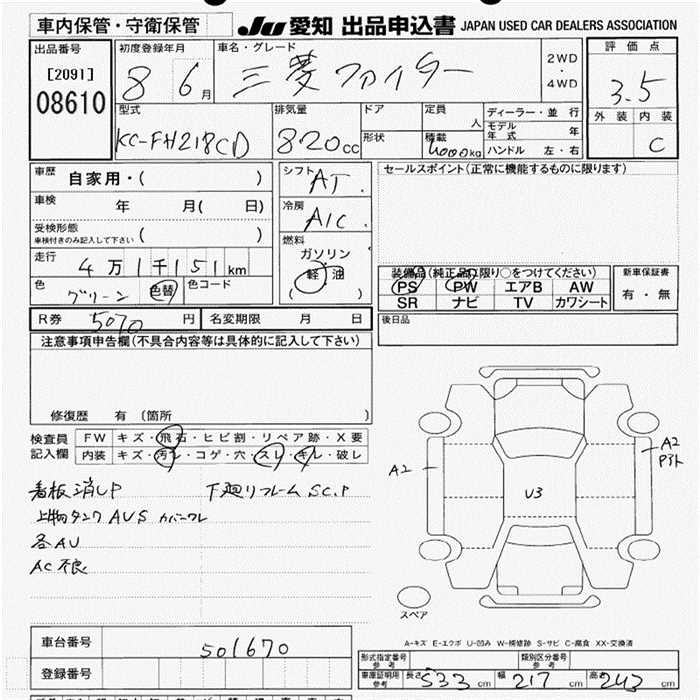 車内保管・守衛保管 JU 愛知 出品申込書 JAPAN USED CAR DEALERS ASSOCIATION
出品番号 初度登録年月 車名・グレード 評価点
[2091] 8 6月 三菱ファイター 2WD ・ 4WD 3.5
08610 外装 内装
型式 排気量 ドア 定員 ディーラー・並行
人 モデル年式 年
KC-FH218CD 820cc 形状 積載 4000kg ハンドル 左・右 C
車歴 自家用・( ) シフト AT セールスポイント(正常に機能するものに限ります)
車検 年 月( 日) 冷房 A/C
受検形態
車検付きのみ記入して下さい ( ) 燃料
走行 4万1千151km ガソリン
軽油 ( ) 装備品(純正品に限り○をつけてください) 新車保証書
色 グリーン 色替 色コード PS PW エアB AW 有・無
SR ナビ TV カワシート
R券 5070円 名変期限 月 日 後日品
注意事項申告欄(不具合内容等は具体的に記入して下さい)
修復歴 有 (箇所 )
検査員 FW キズ・飛石・ヒビ割・リペア跡・X要
記入欄 内装 キズ・汚レ・コゲ・穴・スレ・キレ・破レ
看板消UP 下廻リフレームS.C.P
上物タンクAUS カバーワレ
各AU
AC不良
A2 U3 A2
スペア
A-キズ E-エクボ U-凹み W-補修跡 S-サビ C-腐食 XX-交換済
車台番号 501670
型式指定番号 参考 類別区分番号 参考
登録番号 車庫証明用 参考 長さ 533cm 幅 217cm 高さ 243cm